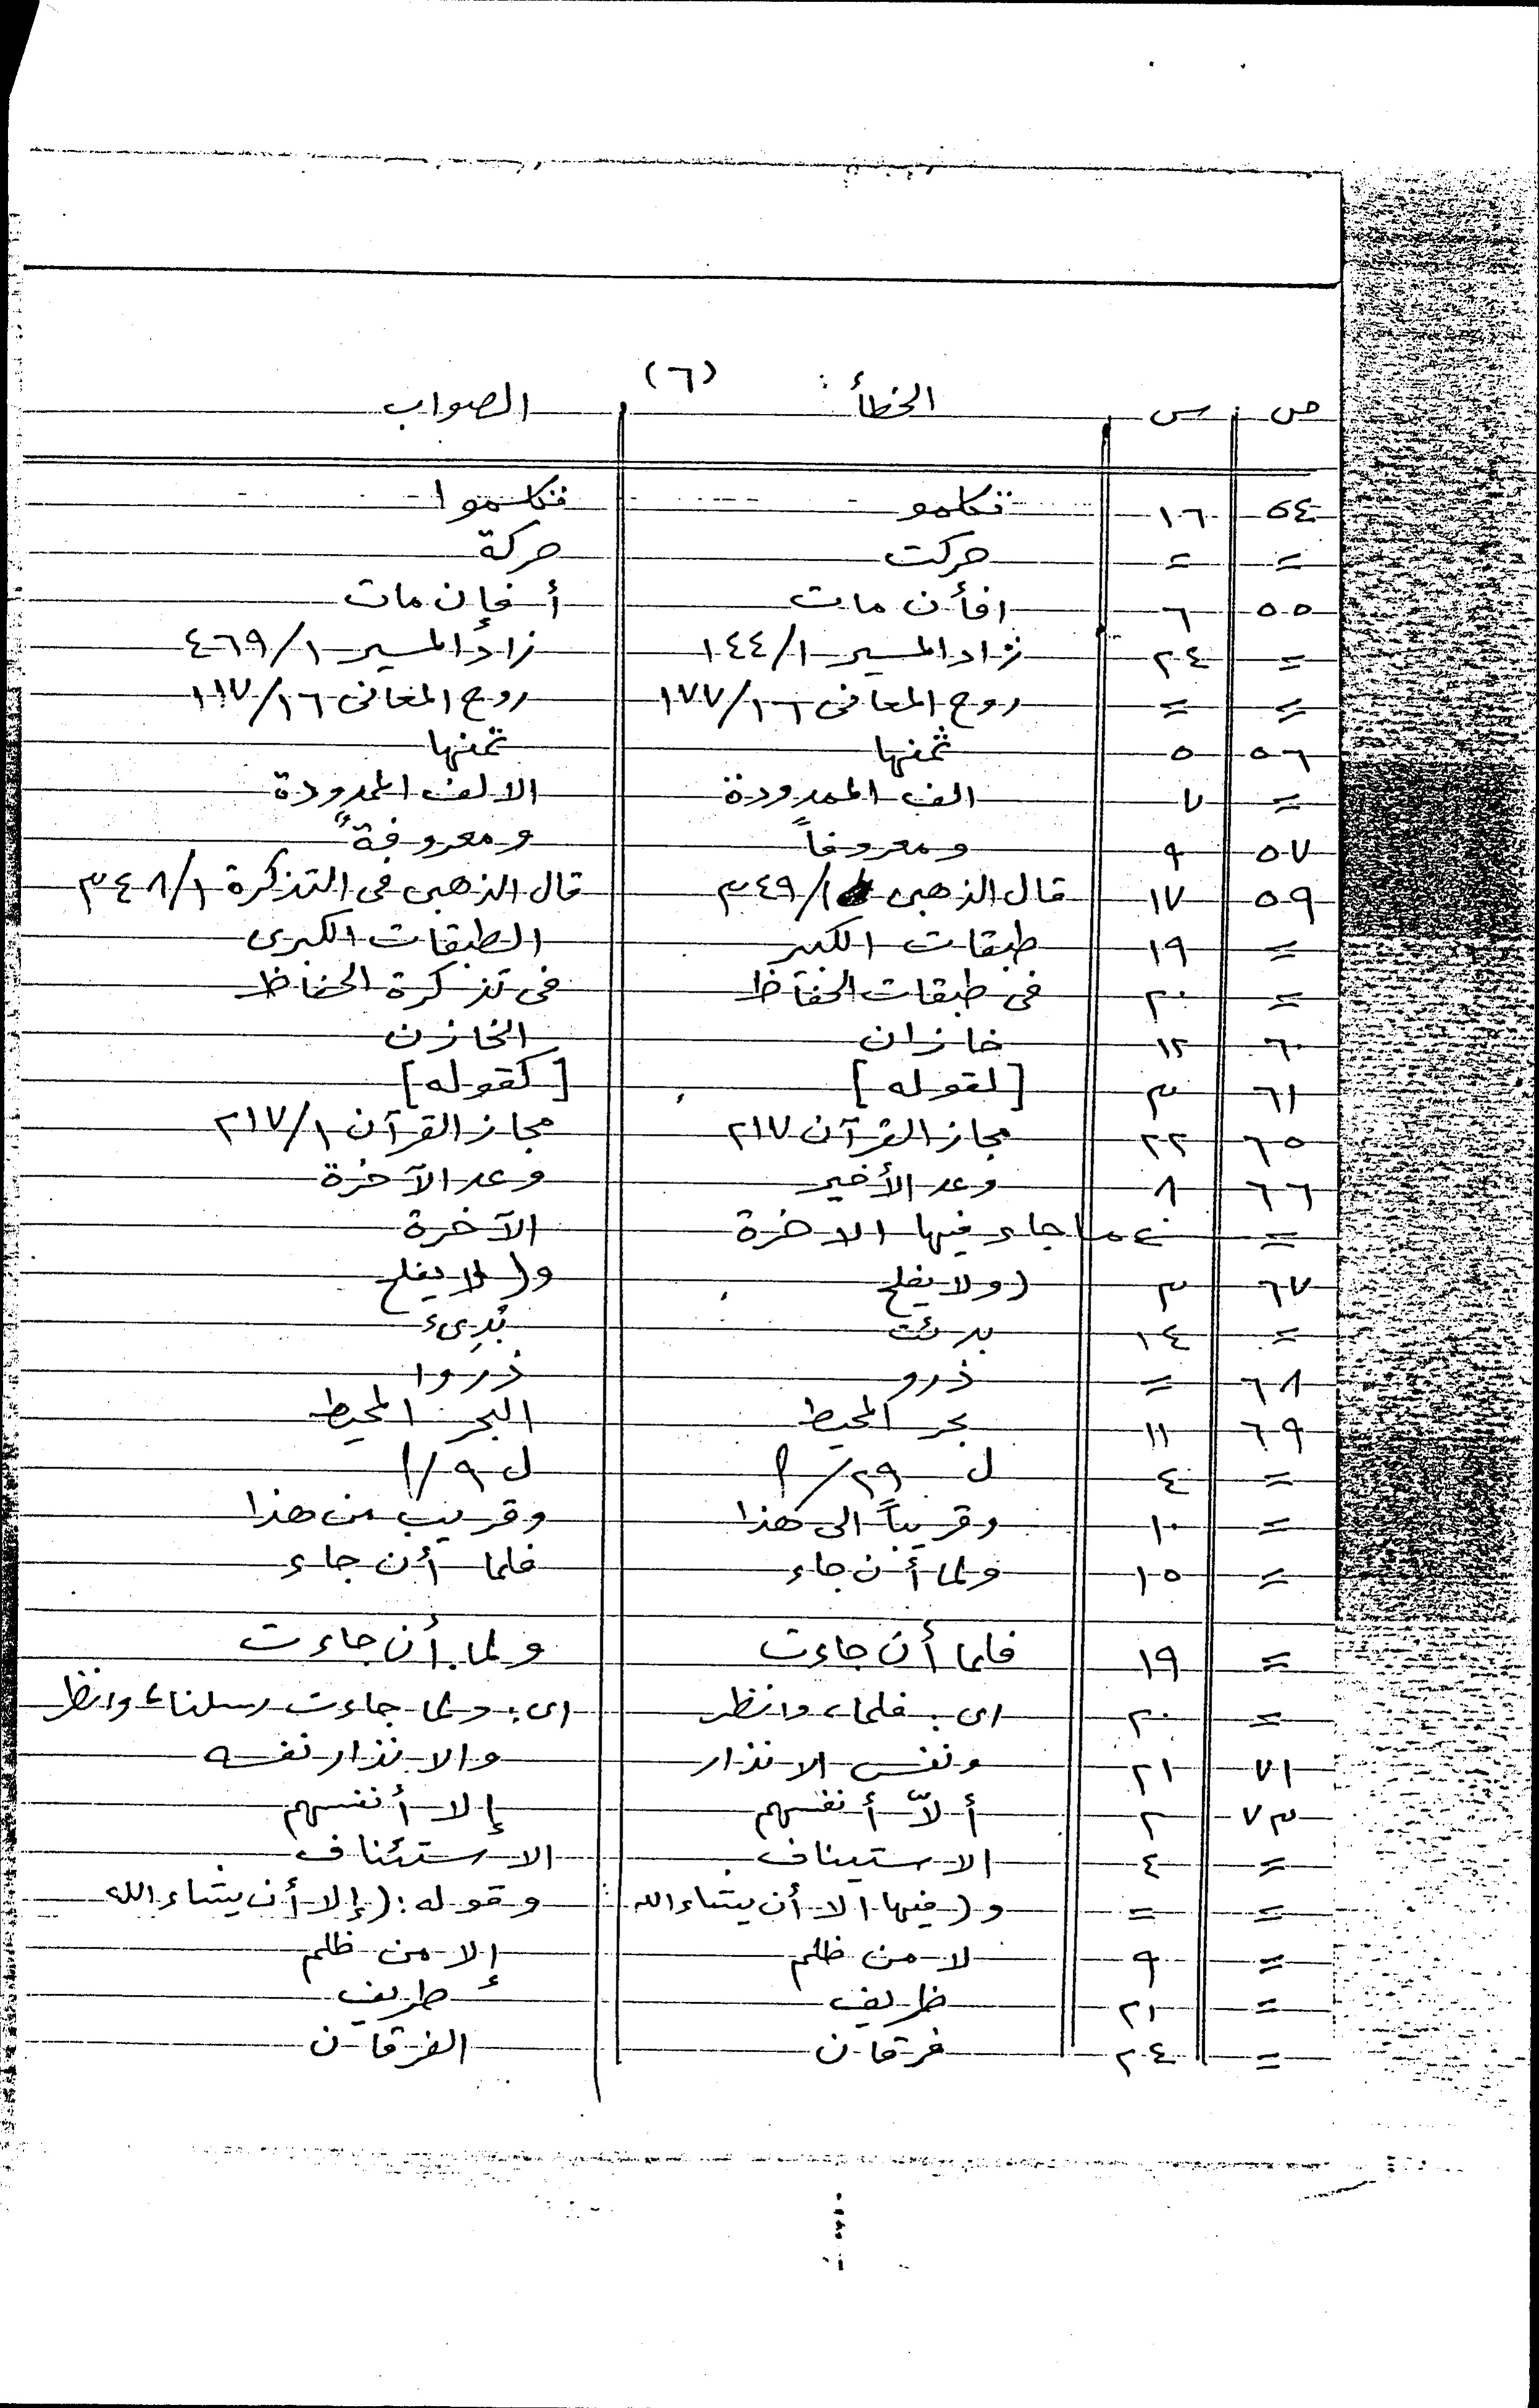 (٦)
ص س الخطأ : الصواب
٥٤ ١٦ تكلمو تكلموا
= = حركت حركة
٥٥ ٦ افأن مات أفإن مات
= ٢٤ زاد المسير ١/١٤٤ زاد المسير ١/٤٦٩
= = روح المعانى ١٦/١٧٧ روح المعانى ١٦/١١٧
٥٦ ٥
= ٧ الف الممدودة الالف الممدودة
٥٧ ٩ ومعروفاً ومعروفة
٥٩ ١٧ قال الذهبى ١/٣٤٩ قال الذهبى فى التذكرة ١/٣٤٨
= ١٩ طبقات الكبير الطبقات الكبرى
= ٢٠ فى طبقات الحفاظ فى تذكرة الحفاظ
٦٠ ١٢ خازان الخازن
٦١ ٣ [لقوله] [كقوله]
٦٥ ٢٢ مجاز القرآن ٢١٧ مجاز القرآن ١/٢١٧
٦٦ ٨ وعد الأخير وعد الآخرة
= ما جاء فيها الاخرة الآخرة
٦٧ ٣ (ولا يفلح و(لا يفلح
= ١٤ بدئت بُدِىء
٦٨ = ذرو ذروا
٦٩ ١١ بحر المحيط البحر المحيط
= ٤ ل ٢٩/أ ل ٩/أ
= ١٠ وقريباً الى هذا وقريب من هذا
= ١٥ ولما أن جاء فلما أن جاء
= ١٩ فلما أن جاءت ولما أن جاءت
= ٢٠ اى : فلما، وانظر اى : ولما جاءت رسلنا، وانظر
٧١ ٢١ ونفس الانذار والانذار نفسه
٧٣ ٢ ألاّ أنفسهم إلا أنفسهم
= ٤ الاستيناف الاستئناف
= = و(فيها الا أن يشاء الله وقوله : (إلا أن يشاء الله
= ٩ لا من ظلم إلا من ظلم
= ٢١ ظريف طريف
= ٢٤ فرقان الفرقان